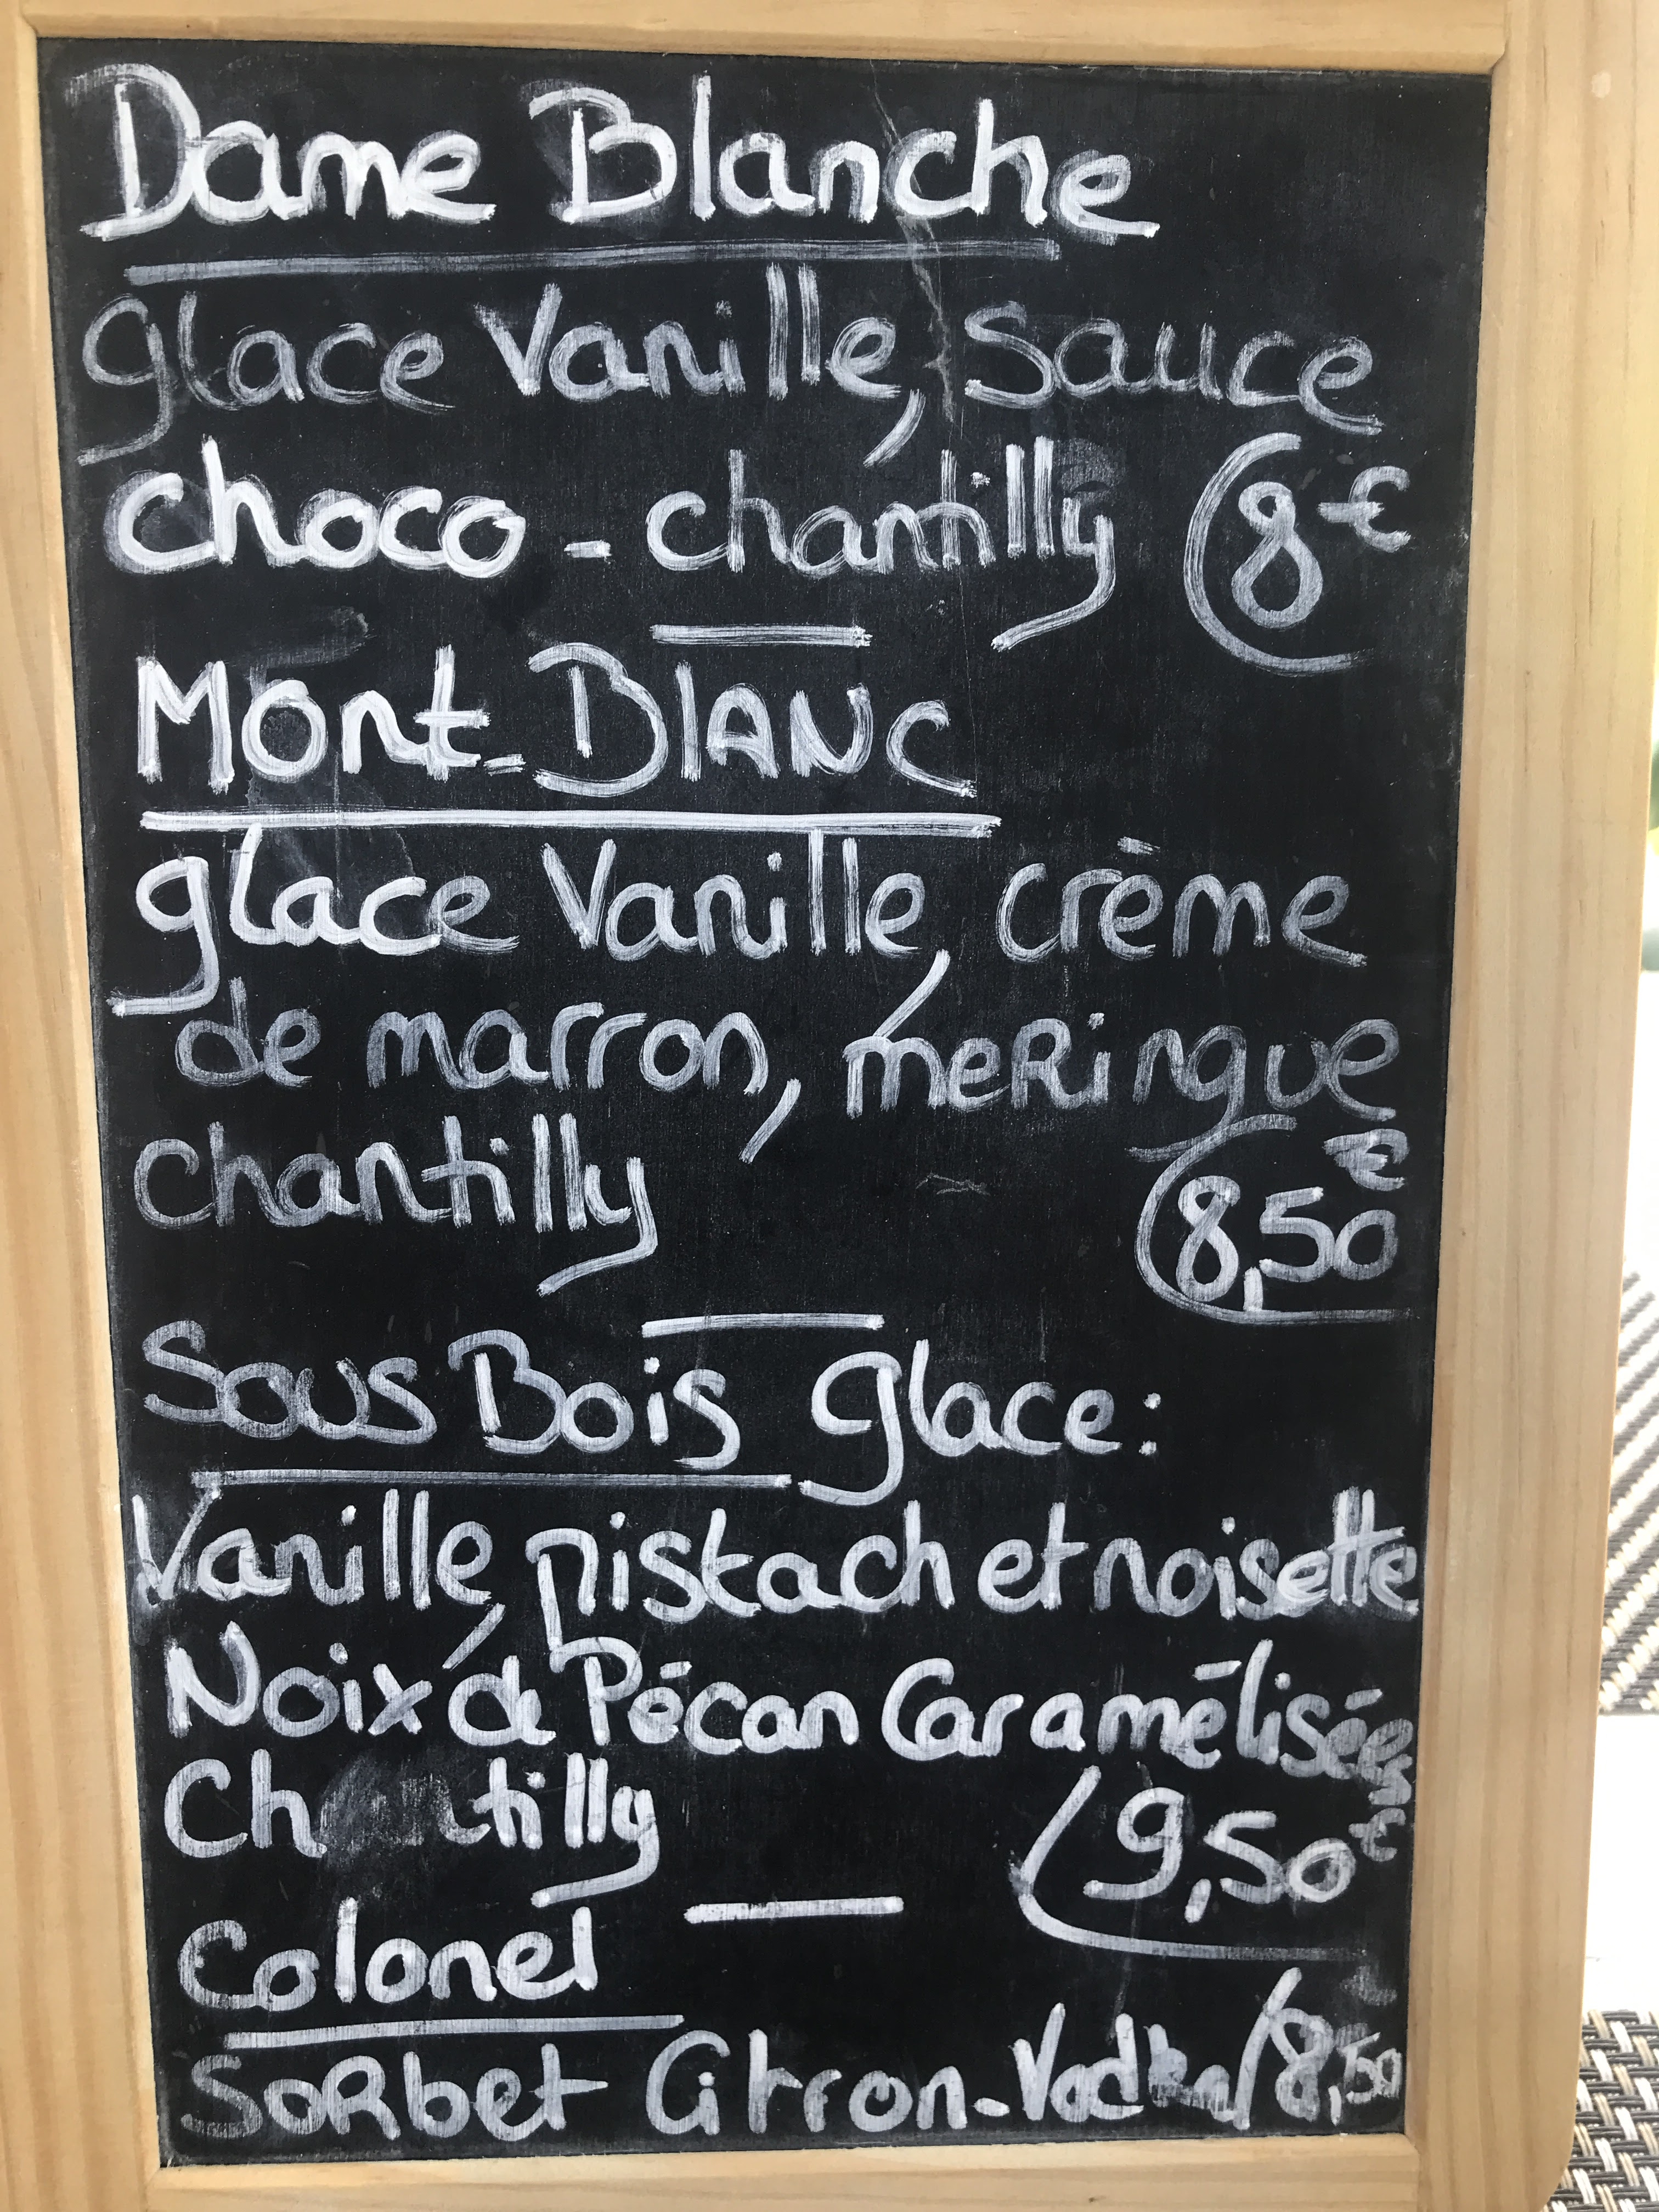 Dame Blanche
glace Vanille, sauce
choco - chantilly 8€
Mont-BlANC
glace Vanille, crème
de marron, meRingue
chantilly 8,50€
Sous Bois glace:
Vanille, pistach et noisette
Noix de Pécan Caramélisées
Ch tilly 9,50€
Colonel
SoRbet Citron-Vodka 8,50